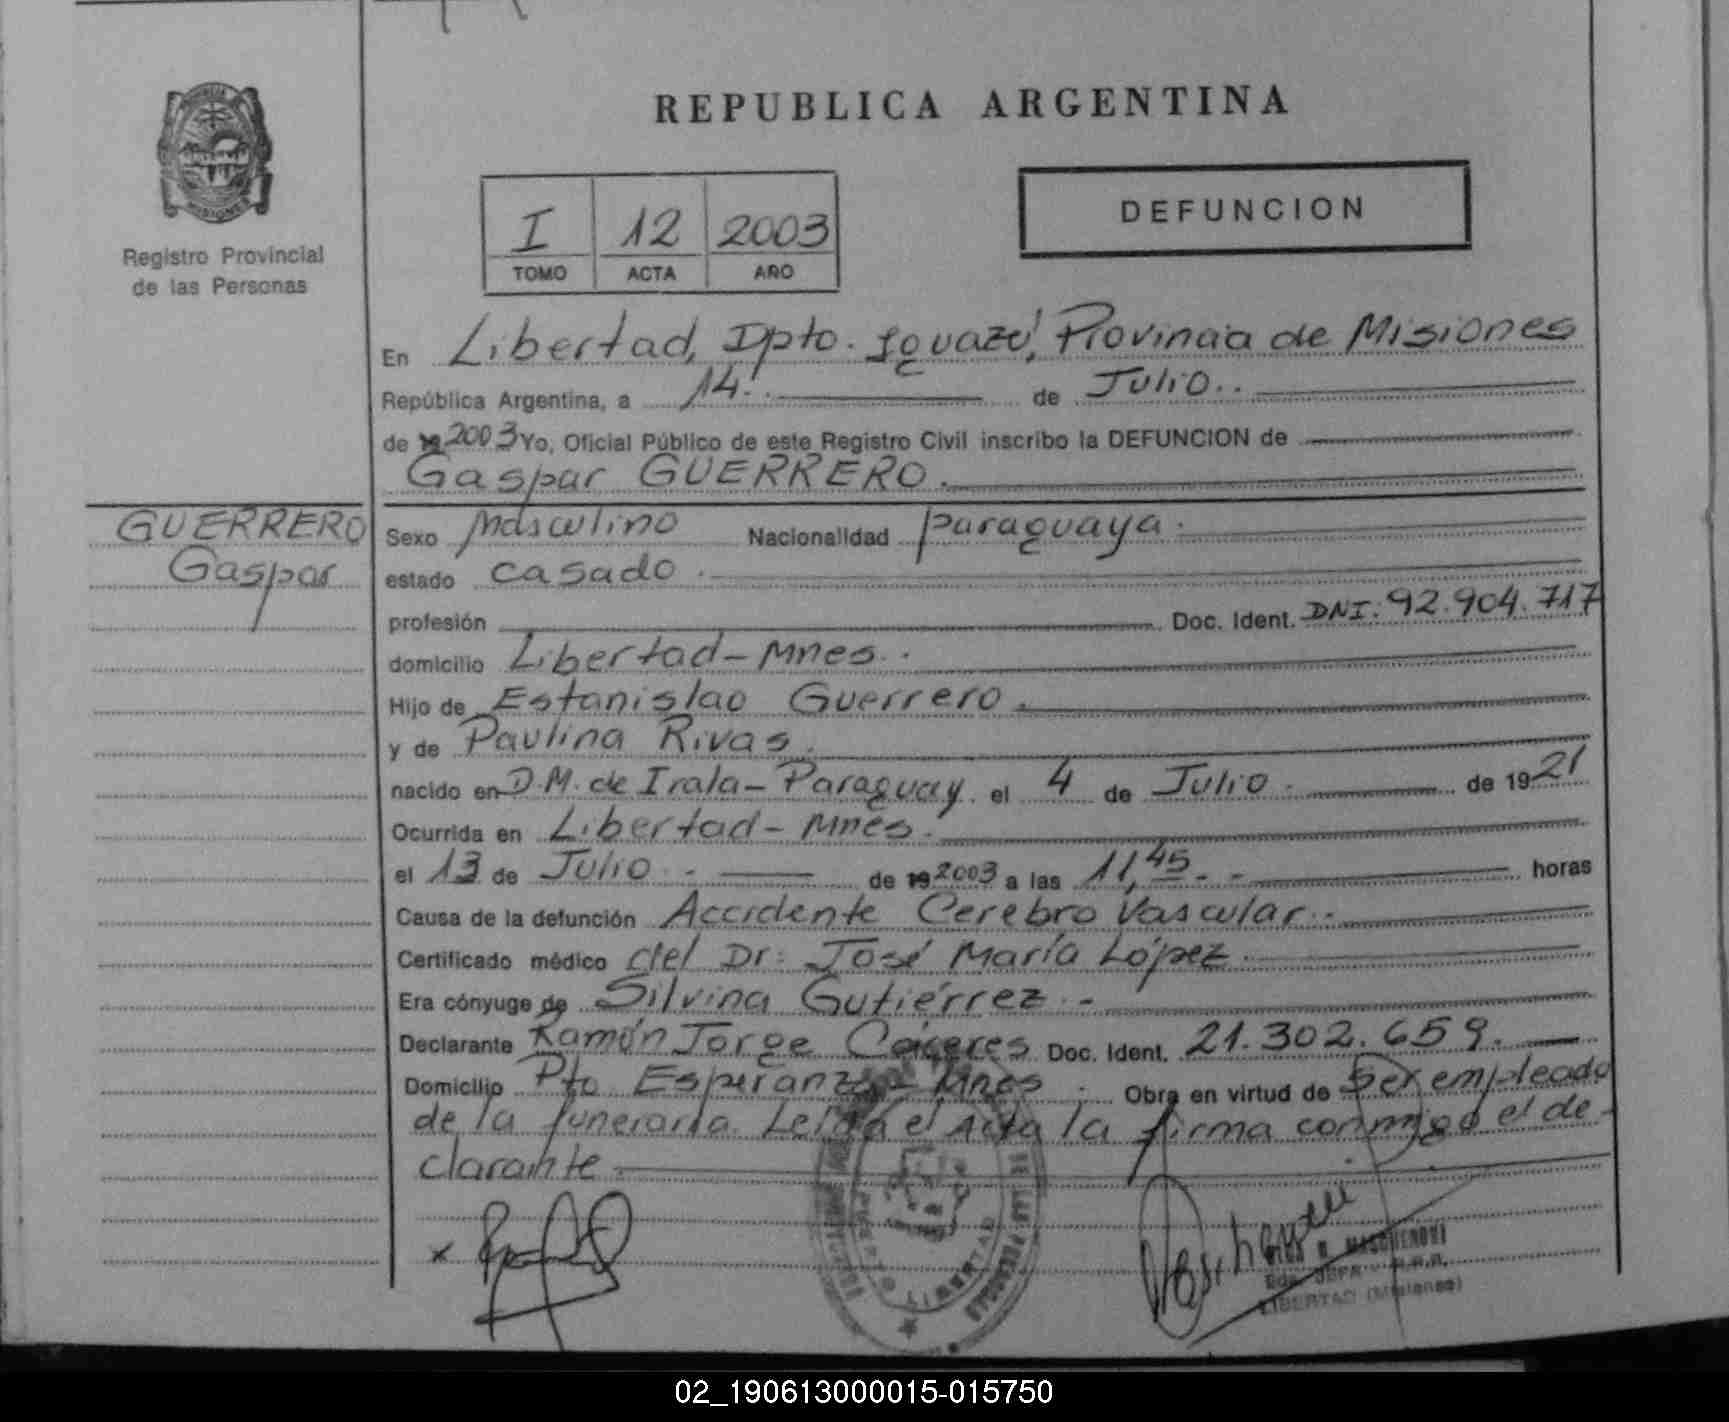 REPUBLICA ARGENTINA
PROVINCIA
MISIONES
Registro Provincial
de las Personas
I 12 2003
TOMO ACTA AÑO
DEFUNCION
En Libertad, Dpto. Iguazú, Provincia de Misiones
República Argentina, a 14. de Julio..
de 19 2003 Yo, Oficial Público de este Registro Civil inscribo la DEFUNCION de
Gaspar GUERRERO.
GUERRERO
Gaspar
Sexo masculino Nacionalidad paraguaya.
estado casado.
profesión Doc. Ident. DNI: 92.904.717
domicilio Libertad-Mnes..
Hijo de Estanislao Guerrero.
y de Paulina Rivas.
nacido en D.M. de Irala-Paraguay. el 4 de Julio. de 1921
Ocurrida en Libertad-Mnes.
el 13 de Julio.- de 19 2003 a las 11,45.- horas
Causa de la defunción Accidente Cerebro Vascular.-
Certificado médico del Dr: José María López
Era cónyuge de Silvina Gutiérrez.-
Declarante Ramón Jorge Cáceres Doc. Ident. 21.302.659.
Domicilio Pto Esperanza-Mnes. Obra en virtud de Ser empleado
de la funeraria. Leída el Acta la firma conmigo el de-
clarante
x
PUERTO LIBERTAD
LIBERTAD (Misiones)
02_190613000015-015750